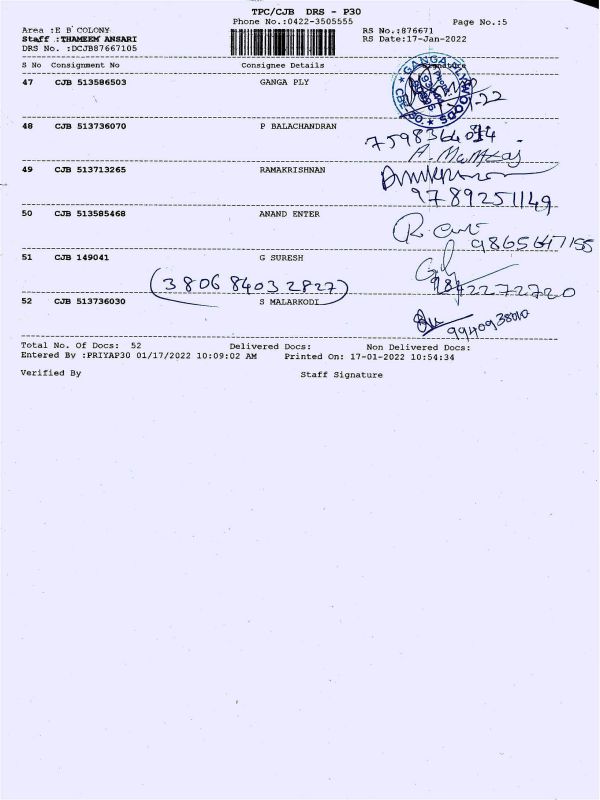 TPC/CJB DRS - P30
Phone No.:0422-3505555
Page No.:5
Area :E B COLONY
RS No.:876671
Staff :THAMEEM ANSARI
RS Date:17-Jan-2022
DRS No. :DCJB87667105
S No Consignment No Consignee Details Signature
47 CJB 513586503 GANGA PLY
GANGA PLYWOODS
48 CJB 513736070 P BALACHANDRAN
A. Mumtaj
49 CJB 513713265 RAMAKRISHNAN
9789251149
50 CJB 513585468 ANAND ENTER
9865647155
51 CJB 149041 G SURESH
(380684032827)
9842272720
52 CJB 513736030 S MALARKODI
Total No. Of Docs: 52 Delivered Docs: Non Delivered Docs:
Entered By :PRIYAP30 01/17/2022 10:09:02 AM Printed On: 17-01-2022 10:54:34
Verified By Staff Signature